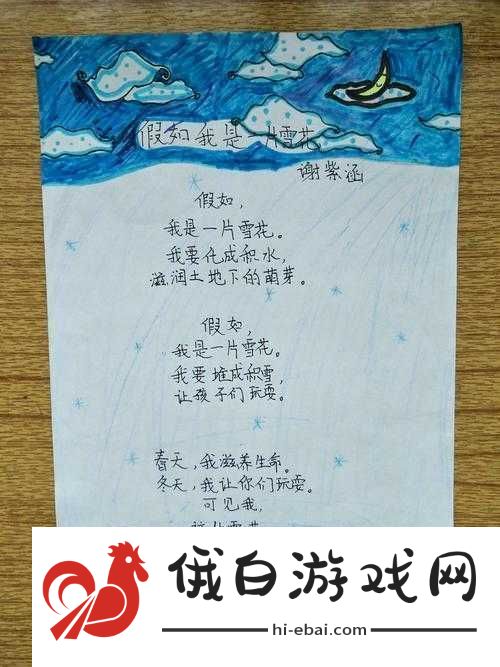 假如我是一片雪花
谢紫涵
假如，
我是一片雪花。
我要化成积水，
滋润土地下的萌芽。
假如，
我是一片雪花。
我要堆成积雪，
让孩子们玩耍。
春天，我滋养生命。
冬天，我让你们玩耍。
可见我，
俄白游戏网
hi-ebai.com